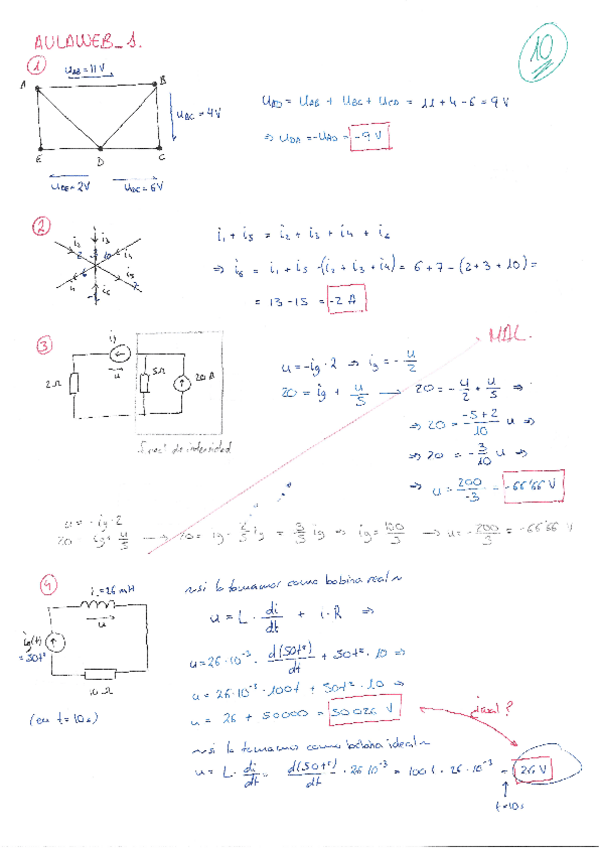 AULAWEB_1.
10
①
u_AB = 11V
A
B
u_BC = 4V
E
D
C
u_DE = 2V
u_DC = 6V
u_AD = u_AB + u_BC + u_CD = 11 + 4 - 6 = 9V
⇒ u_DA = -u_AD = -9V
②
i_2 i_3 i_4
2 10
6
4 i_6 i_5 7
i_1 + i_5 = i_2 + i_3 + i_4 + i_6
⇒ i_6 = i_1 + i_5 - (i_2 + i_3 + i_4) = 6 + 7 - (2 + 3 + 10) =
= 13 - 15 = -2 A
③
MAL.
ig
u
2Ω
5Ω
20 A
F. real de intensidad
u = -ig·2 ⇒ ig = -u/2
20 = ig + u/5 → 20 = -u/2 + u/5 ⇒
⇒ 20 = (-5+2)/10 u ⇒
⇒ 20 = -3/10 u ⇒
⇒ u = 200/-3 = -66'66 V
u = -ig·2
④
L = 26 mH
u
ig(t)
= 50t²
10 Ω
(en t = 10s)
si la tomamos como bobina real
u = L · di/dt + i·R ⇒
u = 26·10⁻³ · d(50t²)/dt + 50t² · 10 ⇒
u = 26·10⁻³ · 100t + 50t² · 10 ⇒
u = 26 + 50000 = 50026 V
¿cual?
si la tomamos como bobina ideal
u = L · di/dt = d(50t²)/dt · 26·10⁻³ = 100t · 26·10⁻³ = 26V
t=10s